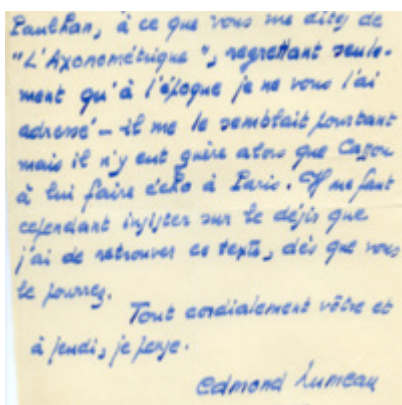 Paulhan, à ce que vous me dites de
"L'Axonométrique", regrettant seule-
ment qu'à l'époque je ne vous l'ai
adressé – il me le semblait pourtant
mais il n'y eut guère alors que Cassou
à lui faire écho à Paris. Il me faut
cependant insister sur le désir que
j'ai de retrouver ce texte, dès que vous
le pourrez.
Tout cordialement vôtre et
à jeudi, je pense.
Edmond Humeau